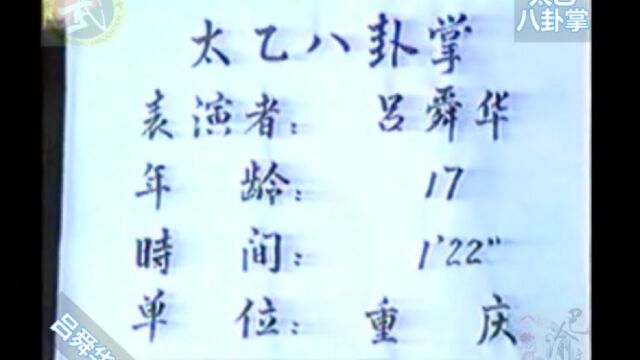 太乙八卦掌
八卦掌
表演者：吕舜华
年龄：17
時间：1'22"
单位：重庆
吕舜华